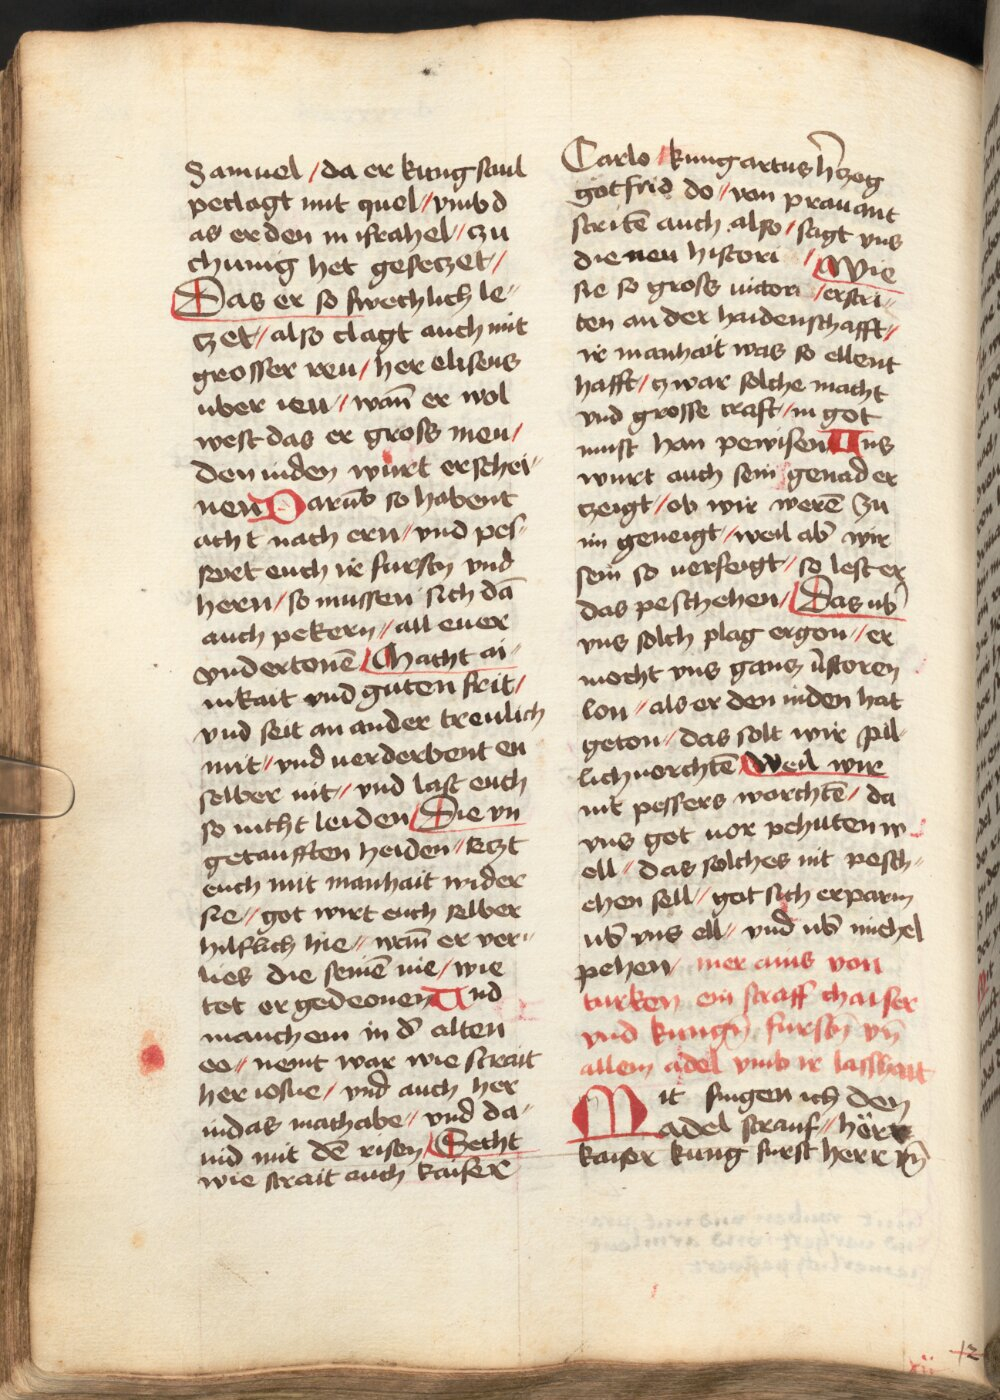 Samuel / da er kung saul
peclagt mit quel // vmb d
as er den in israhel // czu
chunig het gesetzet /
Das er so swechlich le⸗
czet / also clagt auch mit
grosser reu / her eliseus
uber ieu / wañ er wol
west das er gross meu /
den iuden wurt erschei⸗
nen Darūb so habent
acht nach ern // vnd pes⸗
sert euch ir fursten vnd
hern / so mussen sich dā
auch pekern // all euer
vndertonē / Macht ai⸗
nikait vnd guten frit /
vnd seit an ander treulich
mit // vnd uerderbent en
selber nit // vnd last euch
so nicht leiden / Die vn
getaufften heiden // seczt
euch mit manhait wider
sie // got wirt euch selber
hilflich hie // wañ er ver⸗
lies die seinē nie / wie
tet er gedeonen Und
manchem in d' alten
ee // nemt war wie strait
her iosue / vnd auch her
iudas machabe // vnd da⸗
uid mit dē risen / Secht
wie strait auch kaiser
Carlo / kung artus h'czog
gotfrid do // von prauant
stritē auch also / sagt vns
die neu histori / Wie
sie so gross uictori / erstri⸗
ten an der haidenschafft /
ir manhait was so ellent
hafft / czwar solche macht
vnd grosse craft / in got
must han pewisen Uns
wurt auch sein genad er
czeigt / ob wir werē zu
im geneigt / weil ab' wir
sein so uerfeigt / so lest er
das peschehen / Das ub'
vns solch plag ergon // er
mocht vns gancz v'storen
lon // als er den iuden hat
geton // das solt wir pil⸗
lich uorchtē Weil wir
nit pessers worchtē / da
vns got uor pehuten w
ell // das solches nit pesch⸗
ehen sell // got sich erparm
ub' vns ell // vnd ub' michel
pehen / mer ains von
turken ein straff chaiser
vnd kungen fursten vn̄
allem adel vmb ir lasshait
Mit singen ich den
adel strauf // hört
kaiser kung furst herr vn̄
xii
12